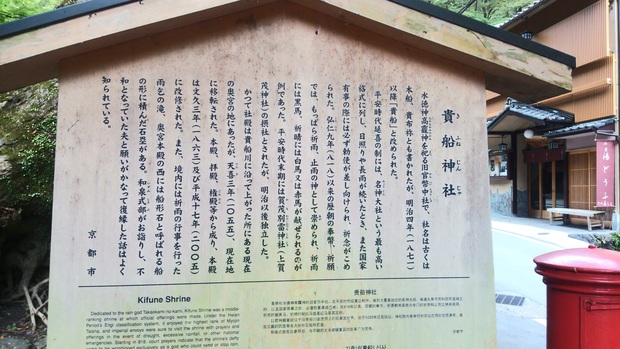 貴船神社
きふねじんじゃ
水徳神高龗神を祀る旧官幣中社で、社名は古くは
木船、貴布祢とも書かれたが、明治四年(一八七一)
以降「貴船」と改められた。
平安時代延喜の制には、名神大社という最も高い
格式に列し、日照りや長雨が続いたとき、また国家
有事の際には必ず勅使が差し向けられ、祈念がこめ
られた。弘仁九年(八一八)以来の歴朝の奉幣、祈願
では、もっぱら祈雨、止雨の神として崇められ、祈雨
には黒馬、祈晴には白馬又は赤馬が献ぜられるのが
例であった。平安時代末期には賀茂別雷神社(上賀
茂神社)の摂社とされたが、明治以後独立した。
かつて社殿は貴船川に沿って上がった所にある現在
の奥宮の地にあったが、天喜三年(一〇五五)現在地
に移転された。本殿、拝殿、権殿等から成り、本殿
は文久三年(一八六三)及び平成十七年(二〇〇五)
に改修された。また、境内には祈雨の行事を行った
雨乞の滝、奥宮本殿の西には船形石と呼ばれる船
の形に積んだ石塁がある。和泉式部がお詣りし、不
和となっていた夫と願いがかなって復縁した話はよく
知られている。
京都市
Kifune Shrine
Dedicated to the rain god Takaokami no kami, Kifune Shrine was a middle-
ranking shrine at which official offerings were made. Under the Heian
Period's Engi classification system, it enjoyed the highest rank of Myojin
Taisha, and imperial envoys were sure to visit the shrine with prayers and
offerings in the event of drought, excessive rainfall, or other national
emergencies. Starting in 818, court prayers indicate that the shrine's deity
貴船神社